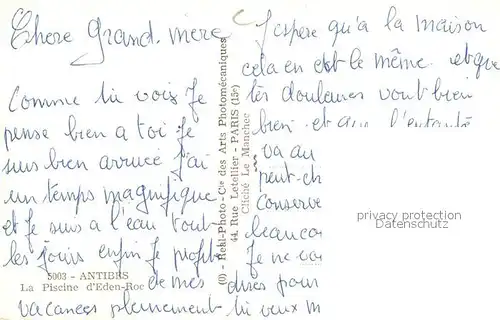 Chere Grand. mère
Comme tu vois Je
pense bien a toi Je
suis bien arrivée J'ai
un temps magnifique
et Je suis a l'eau tout
les jours enfin Je profite
de mes
vacances pleinement
5003 - ANTIBES
La Piscine d'Eden-Roc
(0) - Réki-Photo - Cie des Arts Photomécaniques
44, Rue Letellier - PARIS (15e)
Cliché Le Manchec
J'espere qu'a la maison
cela en est le même. et que
tes douleurs vont bien
bien. et
va au
peut-
Conserve
beaucou
Je ne
dises pour
tu veux
privacy protection
Datenschutz